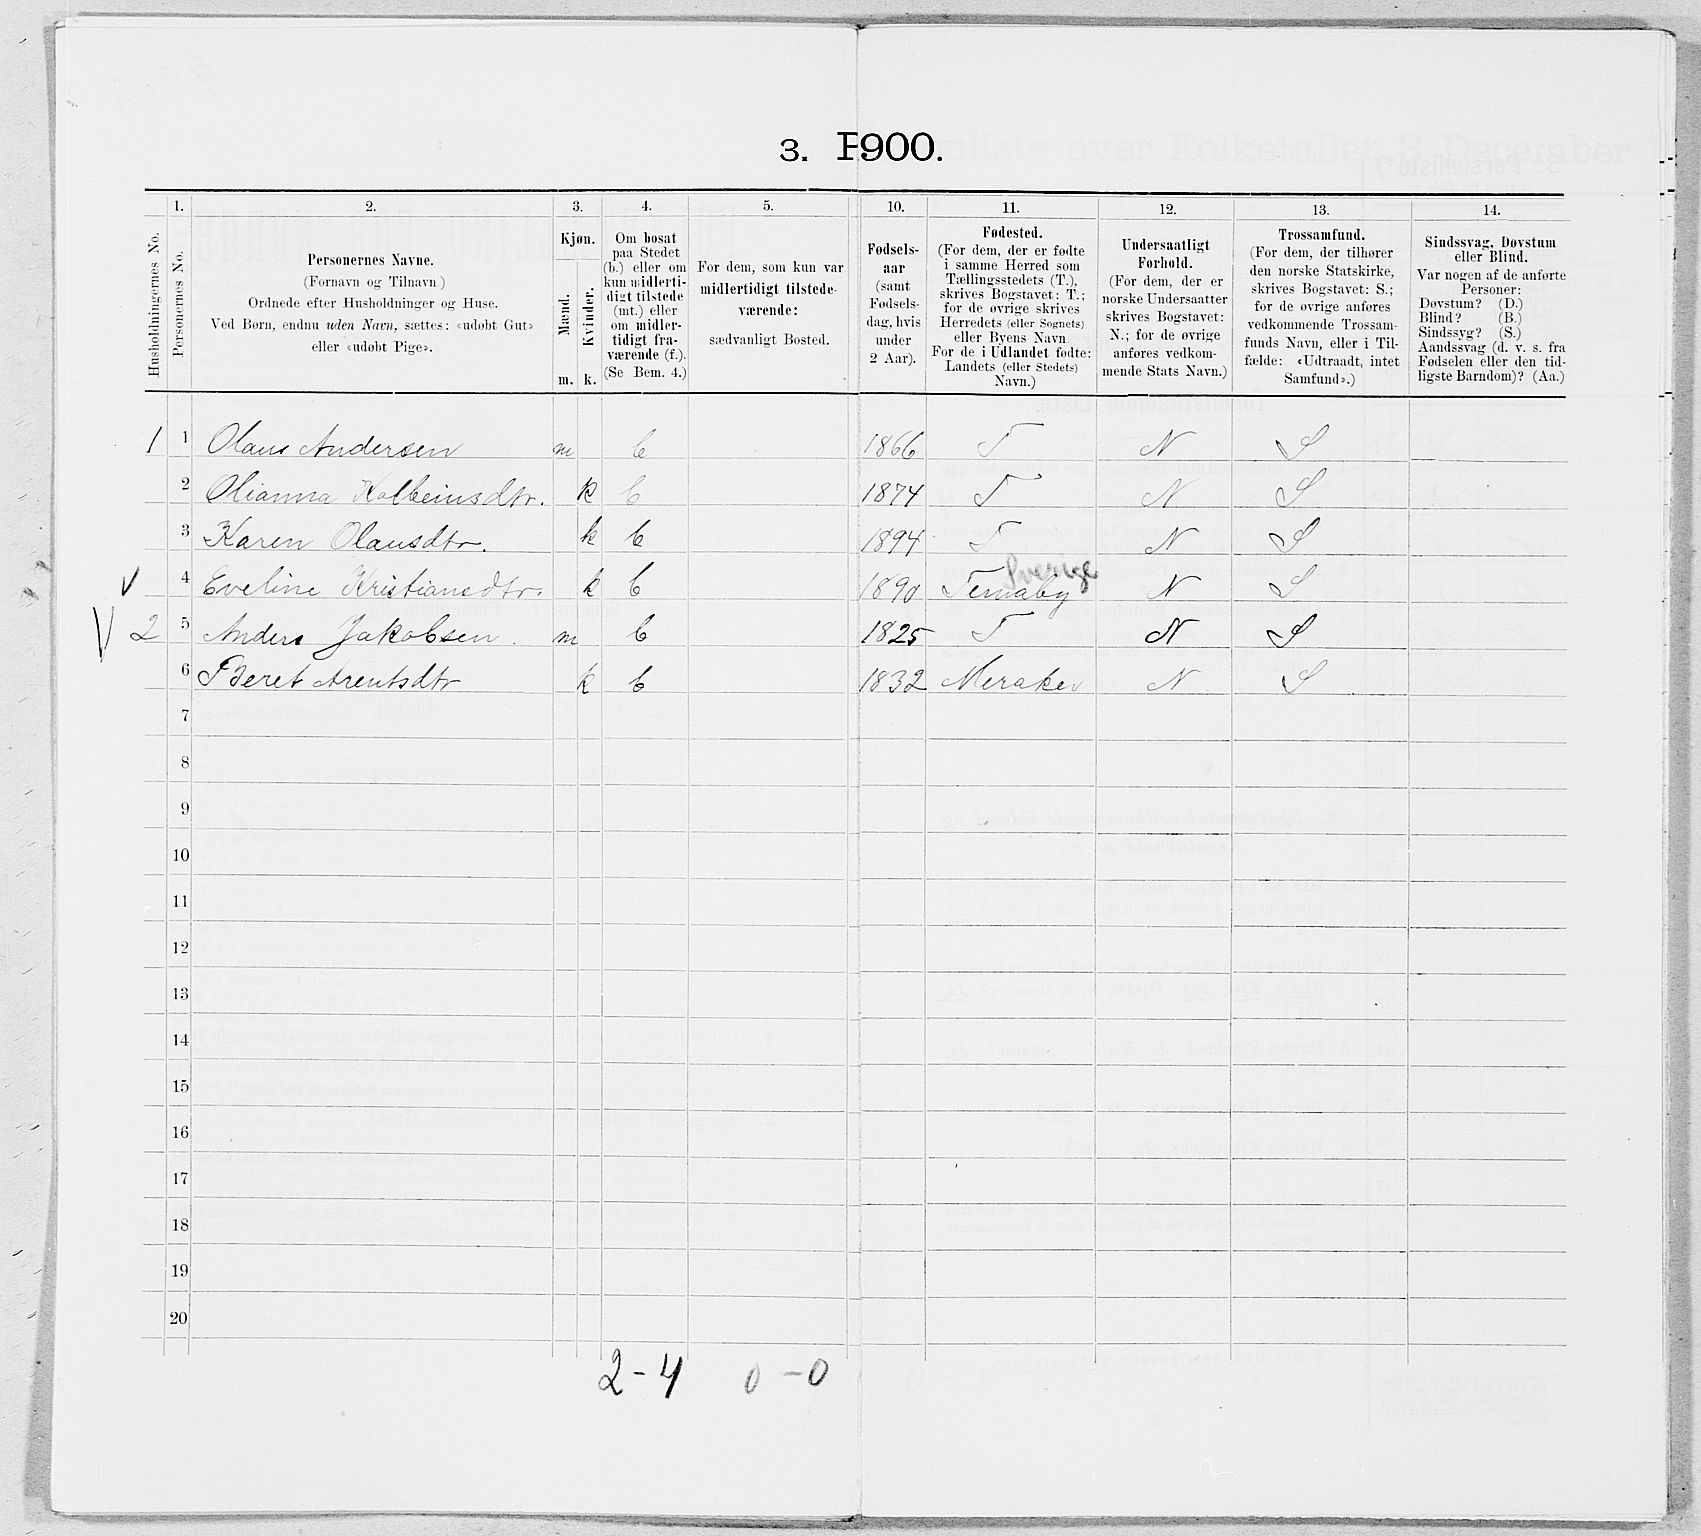 3. F900.
1. 2. 3. 4. 5. 10. 11. 12. 13. 14.
Husholdningernes No.
Personernes No.
Personernes Navne.
(Fornavn og Tilnavn)
Ordnede efter Husholdninger og Huse.
Ved Børn, endnu uden Navn, sættes: «udøbt Gut»
eller «udøbt Pige».
Kjøn.
Mænd.
Kvinder.
m. k.
Om bosat
paa Stedet
(b.) eller om
kun midlerti-
digt tilstede
(mt.) eller
om midler-
tidigt fra-
værende (f.).
(Se Bem. 4.)
For dem, som kun var
midlertidigt tilstede-
værende:
sædvanligt Bosted.
Fødsels-
aar
(samt
Fødsels-
dag, hvis
under
2 Aar).
Fødested.
(For dem, der er fødte
i samme Herred som
Tællingsstedets (T.),
skrives Bogstavet: T.;
for de øvrige skrives
Herredets (eller Sognets)
eller Byens Navn.
For de i Udlandet fødte:
Landets (eller Stedets)
Navn.)
Undersaatligt
Forhold.
(For dem, der er
norske Undersaatter
skrives Bogstavet:
N.; for de øvrige
anføres vedkom-
mende Stats Navn.)
Trossamfund.
(For dem, der tilhører
den norske Statskirke,
skrives Bogstavet: S.;
for de øvrige anføres
vedkommende Trossam-
funds Navn, eller i Til-
fælde: «Udtraadt, intet
Samfund».)
Sindssvag, Døvstum
eller Blind.
Var nogen af de anførte
Personer:
Døvstum? (D.)
Blind? (B.)
Sindssyg? (S.)
Aandssvag (d. v. s. fra
Fødselen eller den tid-
ligste Barndom)? (Aa.)
1 1 Olaus Andersen m b 1866 T N S
2 Olianna Kolbeinsdtr. k b 1874 T N S
3 Karen Olausdtr. k b 1894 T N S
Sverige
4 Eveline Kristiansdtr. k b 1890 Ternaby N S
2 5 Anders Jakobsen. m b 1825 T N S
6 Beret Arentsdtr k b 1832 Meraker N S
7
8
9
10
11
12
13
14
15
16
17
18
19
20
2-4 0-0